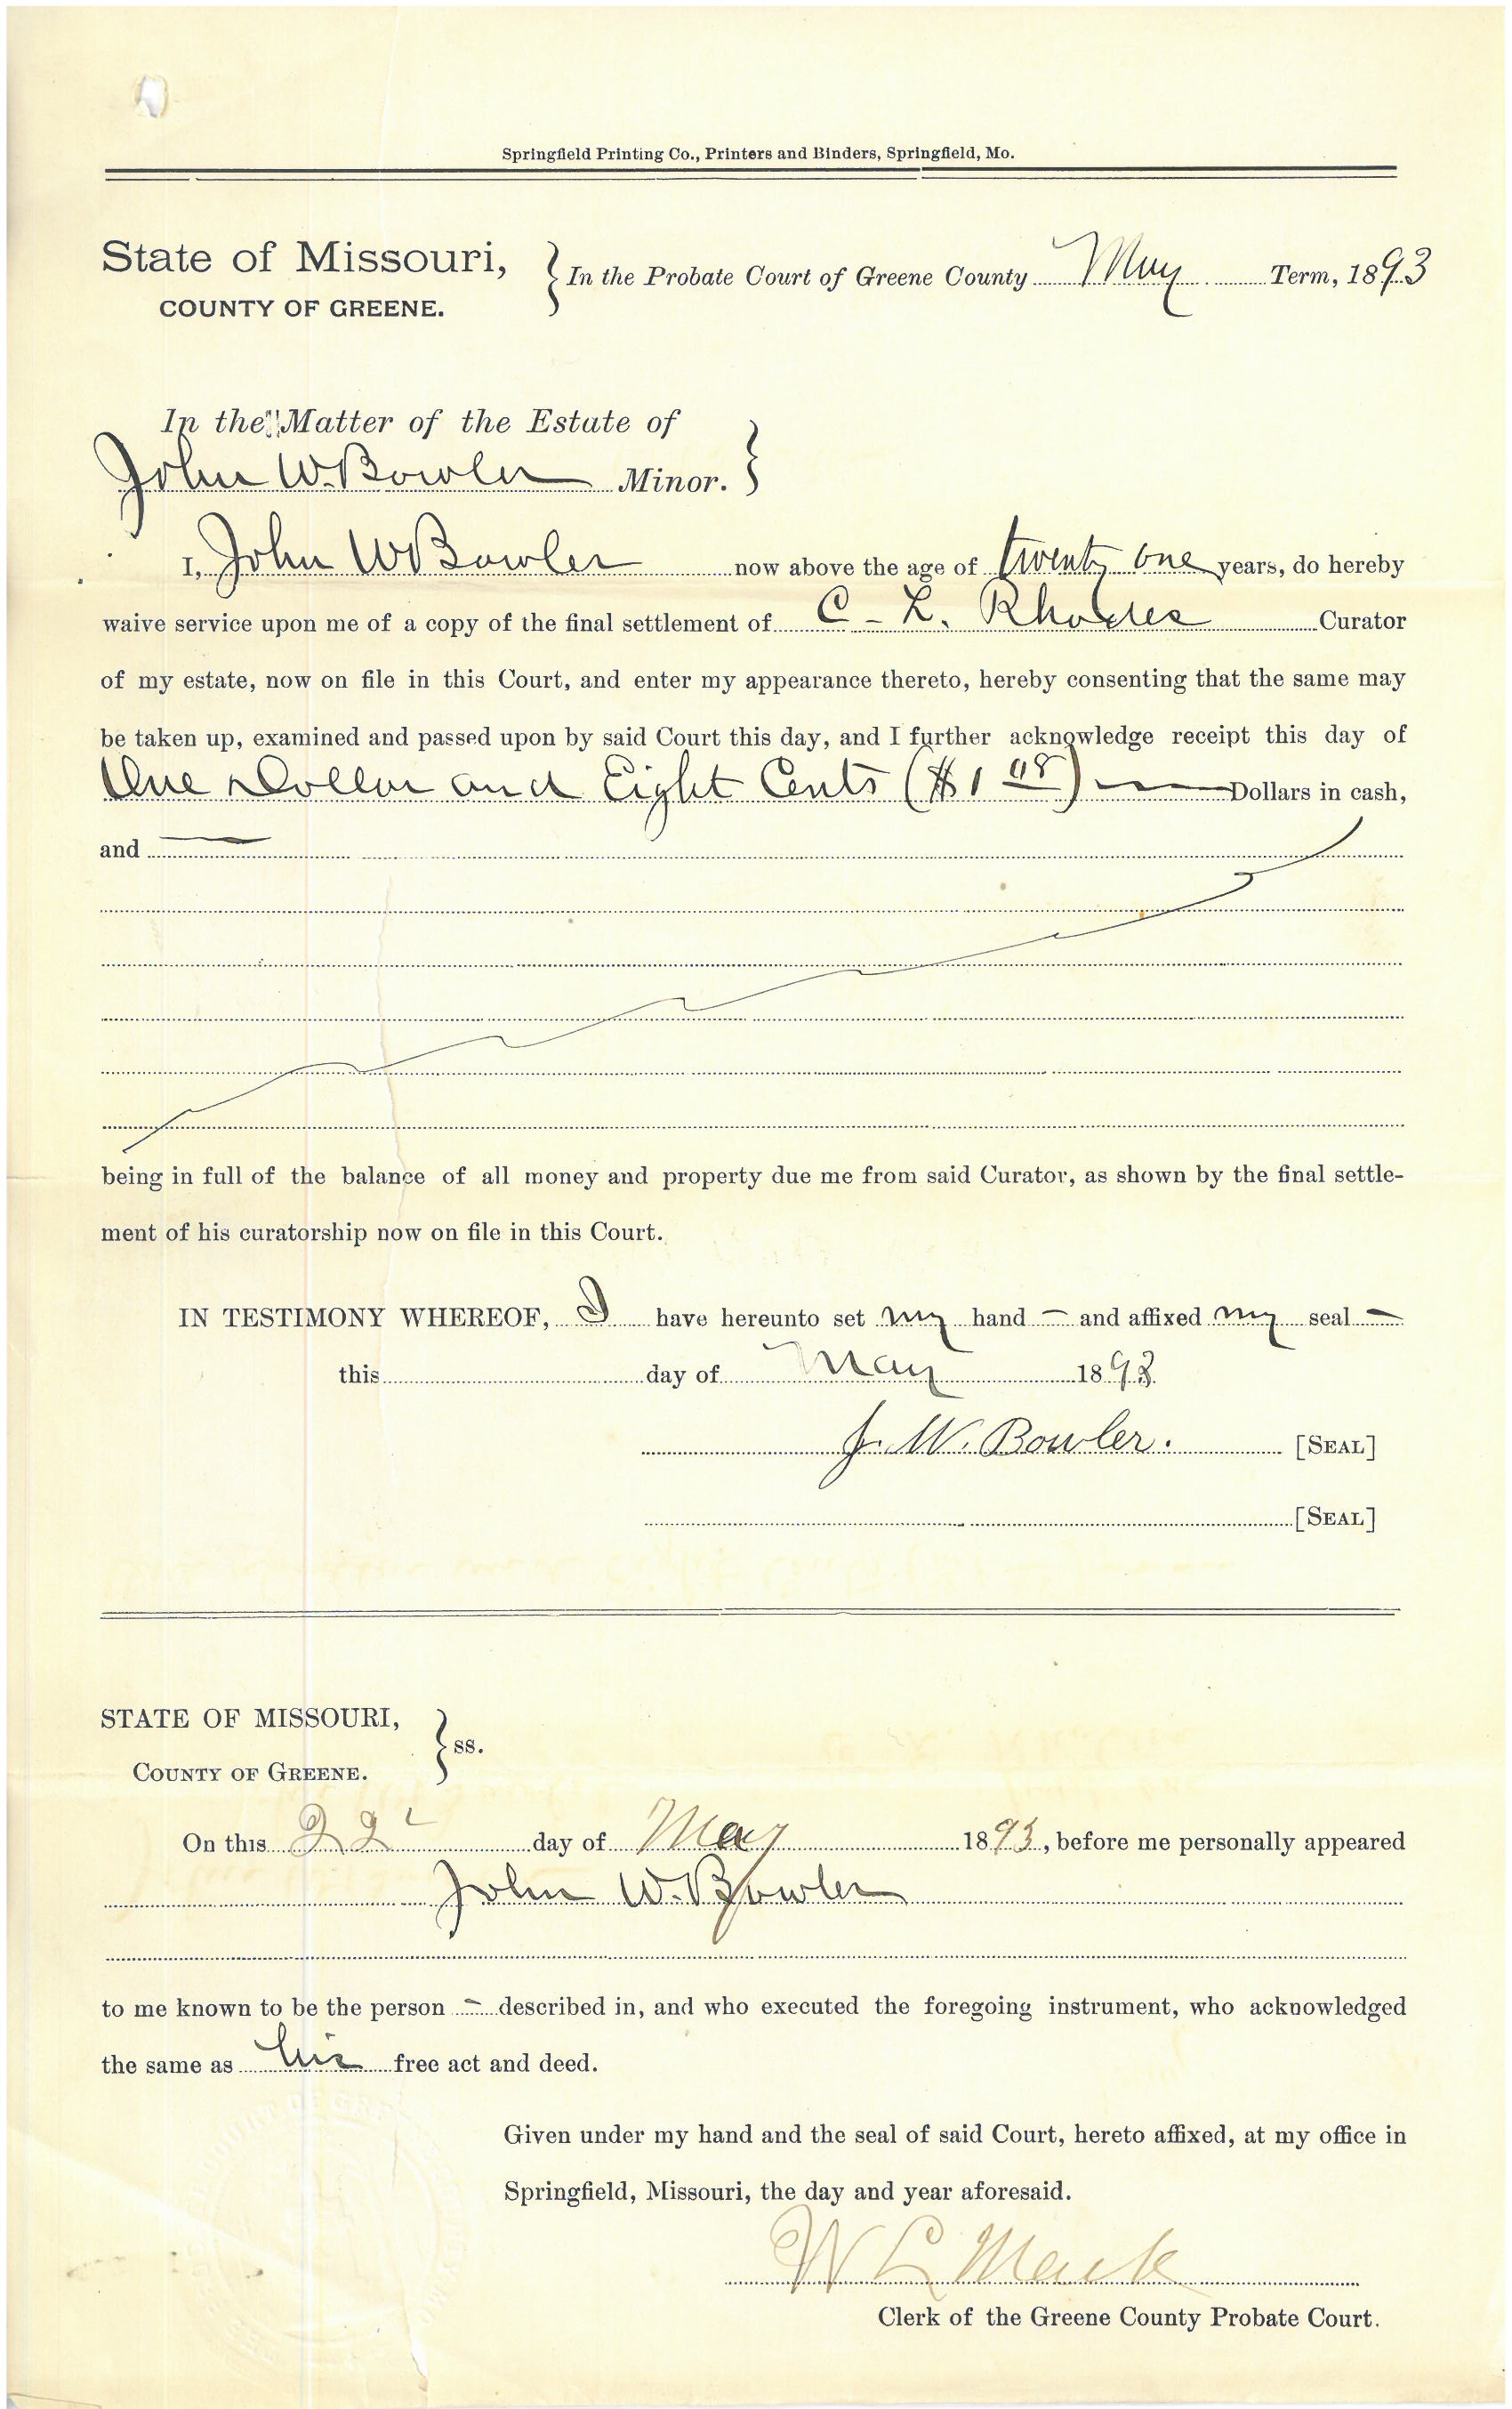 Springfield Printing Co., Printers and Binders, Springfield, Mo.
State of Missouri, } In the Probate Court of Greene County May Term, 1893
COUNTY OF GREENE.
In the Matter of the Estate of
John W. Bowler Minor. }
I, John W Bowler now above the age of twenty one years, do hereby
waive service upon me of a copy of the final settlement of C - L. Rhodes Curator
of my estate, now on file in this Court, and enter my appearance thereto, hereby consenting that the same may
be taken up, examined and passed upon by said Court this day, and I further acknowledge receipt this day of
One Dollar and Eight Cents ($1 08) — Dollars in cash,
and —
being in full of the balance of all money and property due me from said Curator, as shown by the final settle-
ment of his curatorship now on file in this Court.
IN TESTIMONY WHEREOF, I have hereunto set my hand — and affixed my seal —
this day of May 1893.
J. W. Bowler. [SEAL]
[SEAL]
STATE OF MISSOURI, } ss.
COUNTY OF GREENE.
On this 22 day of May 1893, before me personally appeared
John W. Bowler
to me known to be the person - described in, and who executed the foregoing instrument, who acknowledged
the same as his free act and deed.
Given under my hand and the seal of said Court, hereto affixed, at my office in
Springfield, Missouri, the day and year aforesaid.
W L Mack
Clerk of the Greene County Probate Court.